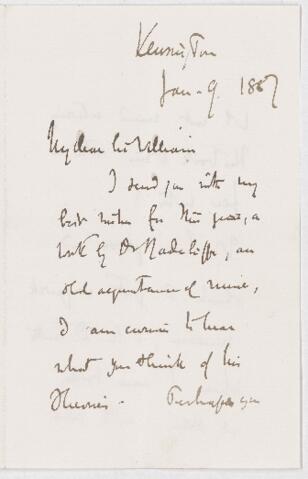 Kensington
Jan. 9. 1887
My dear Sir William
I send you with my
best wishes for this year, a
work by Dr Radcliffe, an
old acquaintance of mine,
I am curious to hear
what you think of his
theories. Perhaps you